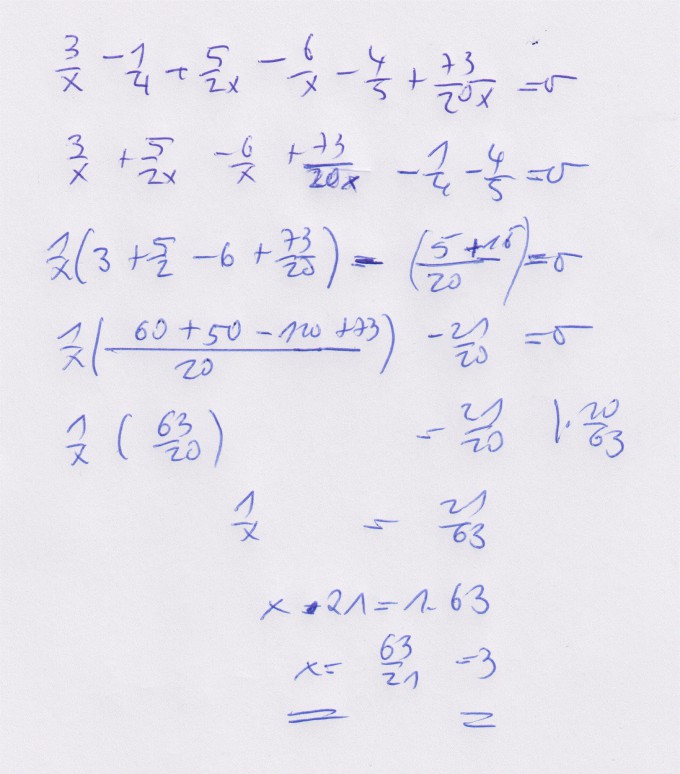 3/x - 1/4 + 5/2x - 6/x - 4/5 + 73/20x = 0
3/x + 5/2x - 6/x + 73/20x - 1/4 - 4/5 = 0
1/x (3 + 5/2 - 6 + 73/20) - ((5 + 16)/20) = 0
1/x ((60 + 50 - 120 + 73)/20) - 21/20 = 0
1/x (63/20) = 21/20 | · 20/63
1/x = 21/63
x · 21 = 1 · 63
x = 63/21 = 3